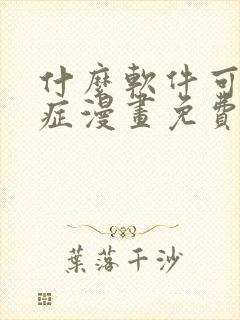 什麼軟件可
症漫畫免費
葉落千沙